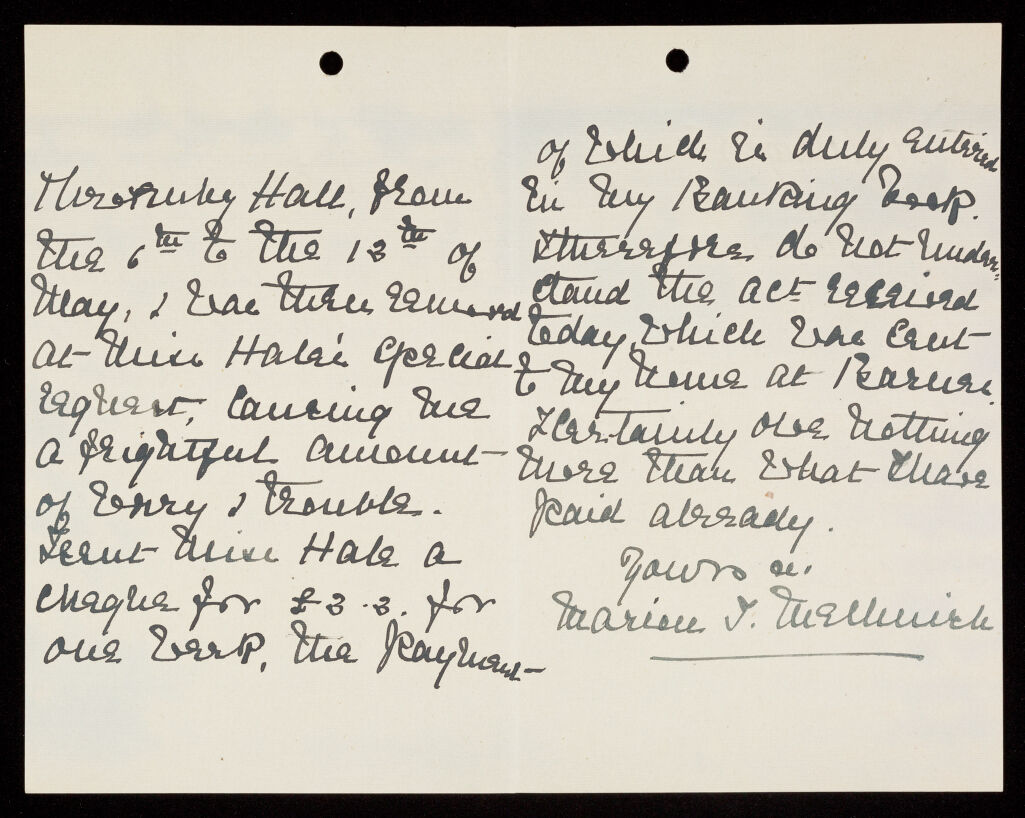 Hall, from
the 6th to the 13th of
May, & was then removed
at Miss Hale's special
request, causing me
a frightful amount
of worry & trouble.
I sent Miss Hale a
cheque for £3.3. for
one week, the payment
of which is duly entered
in my Banking book.
I therefore do not under-
stand the act received
today, which was sent
to my home at Barnes.
I certainly owe nothing
more than what I have
paid already.
Yours
Marion T.